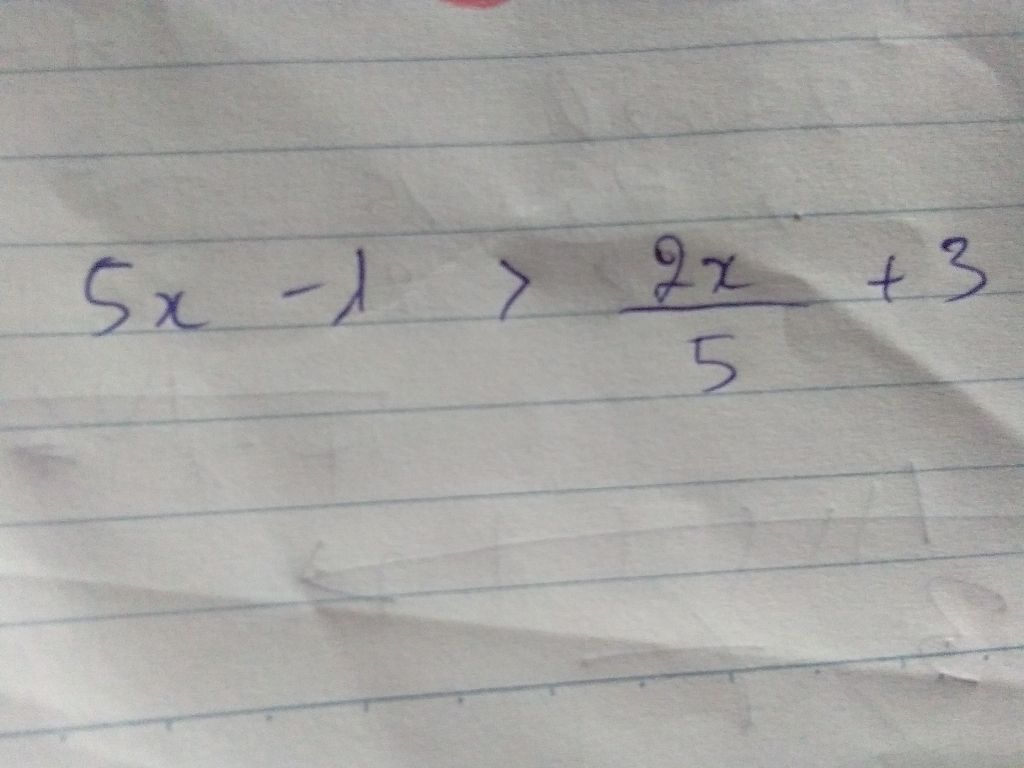 5x - 1 > 2x/5 + 3